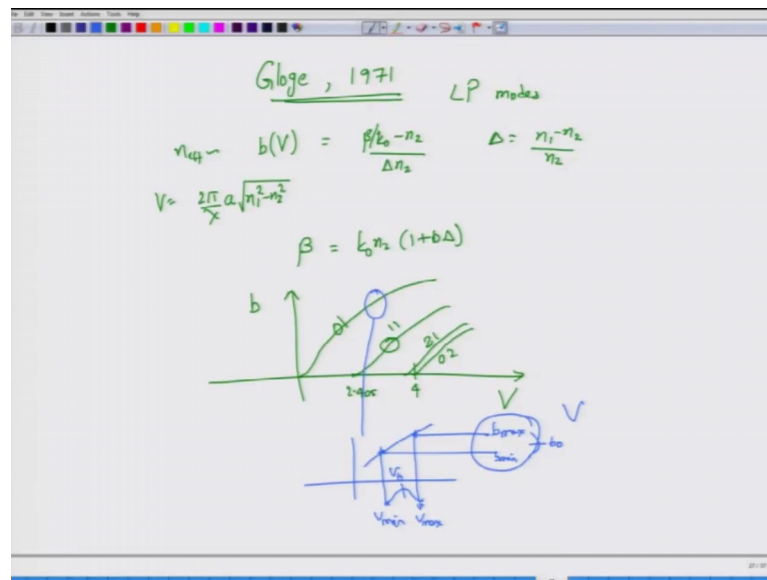 File Edit View Insert Actions Tools Help
Gloge, 1971
LP modes
n_eff ~ b(V) = (β/k₀ - n₂) / (Δn₂)
Δ = (n₁ - n₂) / n₂
V = (2π/λ) a √(n₁² - n₂²)
β = k₀n₂ (1+bΔ)
b
01
11
21
02
2.405
4
V
V
bmax
bmin
b₀
Vmin Vmax